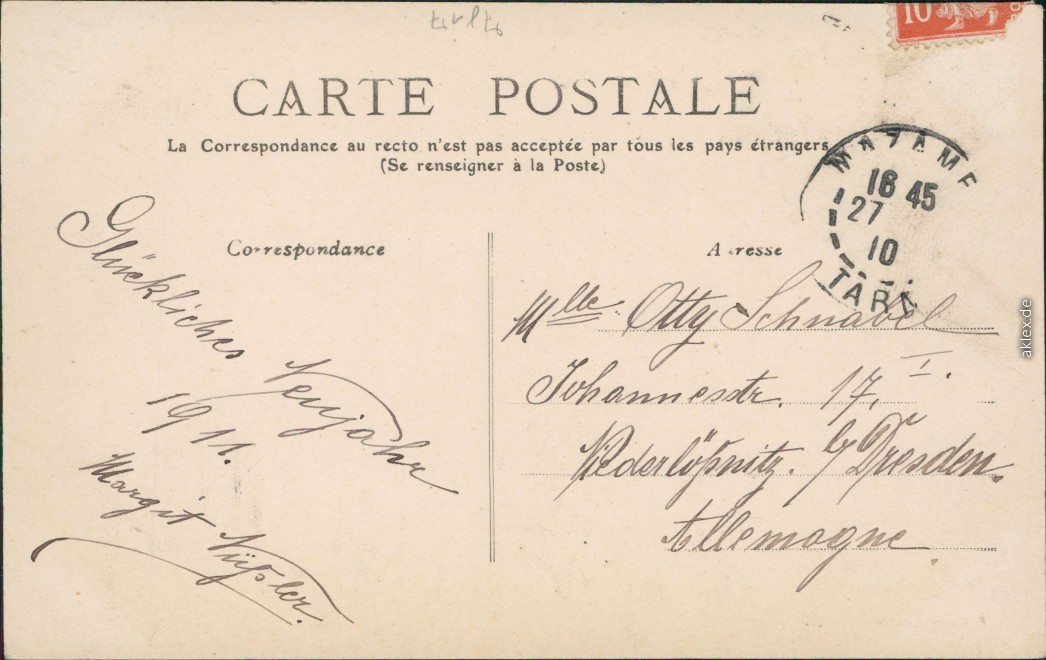 10
CARTE POSTALE
La Correspondance au recto n'est pas acceptée par tous les pays étrangers
(Se renseigner à la Poste)
MAZAME
16 45
27
10
TARN
Correspondance
Adresse
Glückliches
Neujahr
1911.
Margit Nüßler.
Mlle Otty Schnabel
Johannesstr. 17, I.
Niederlößnitz. b/ Dresden.
Allemagne
aklex.de